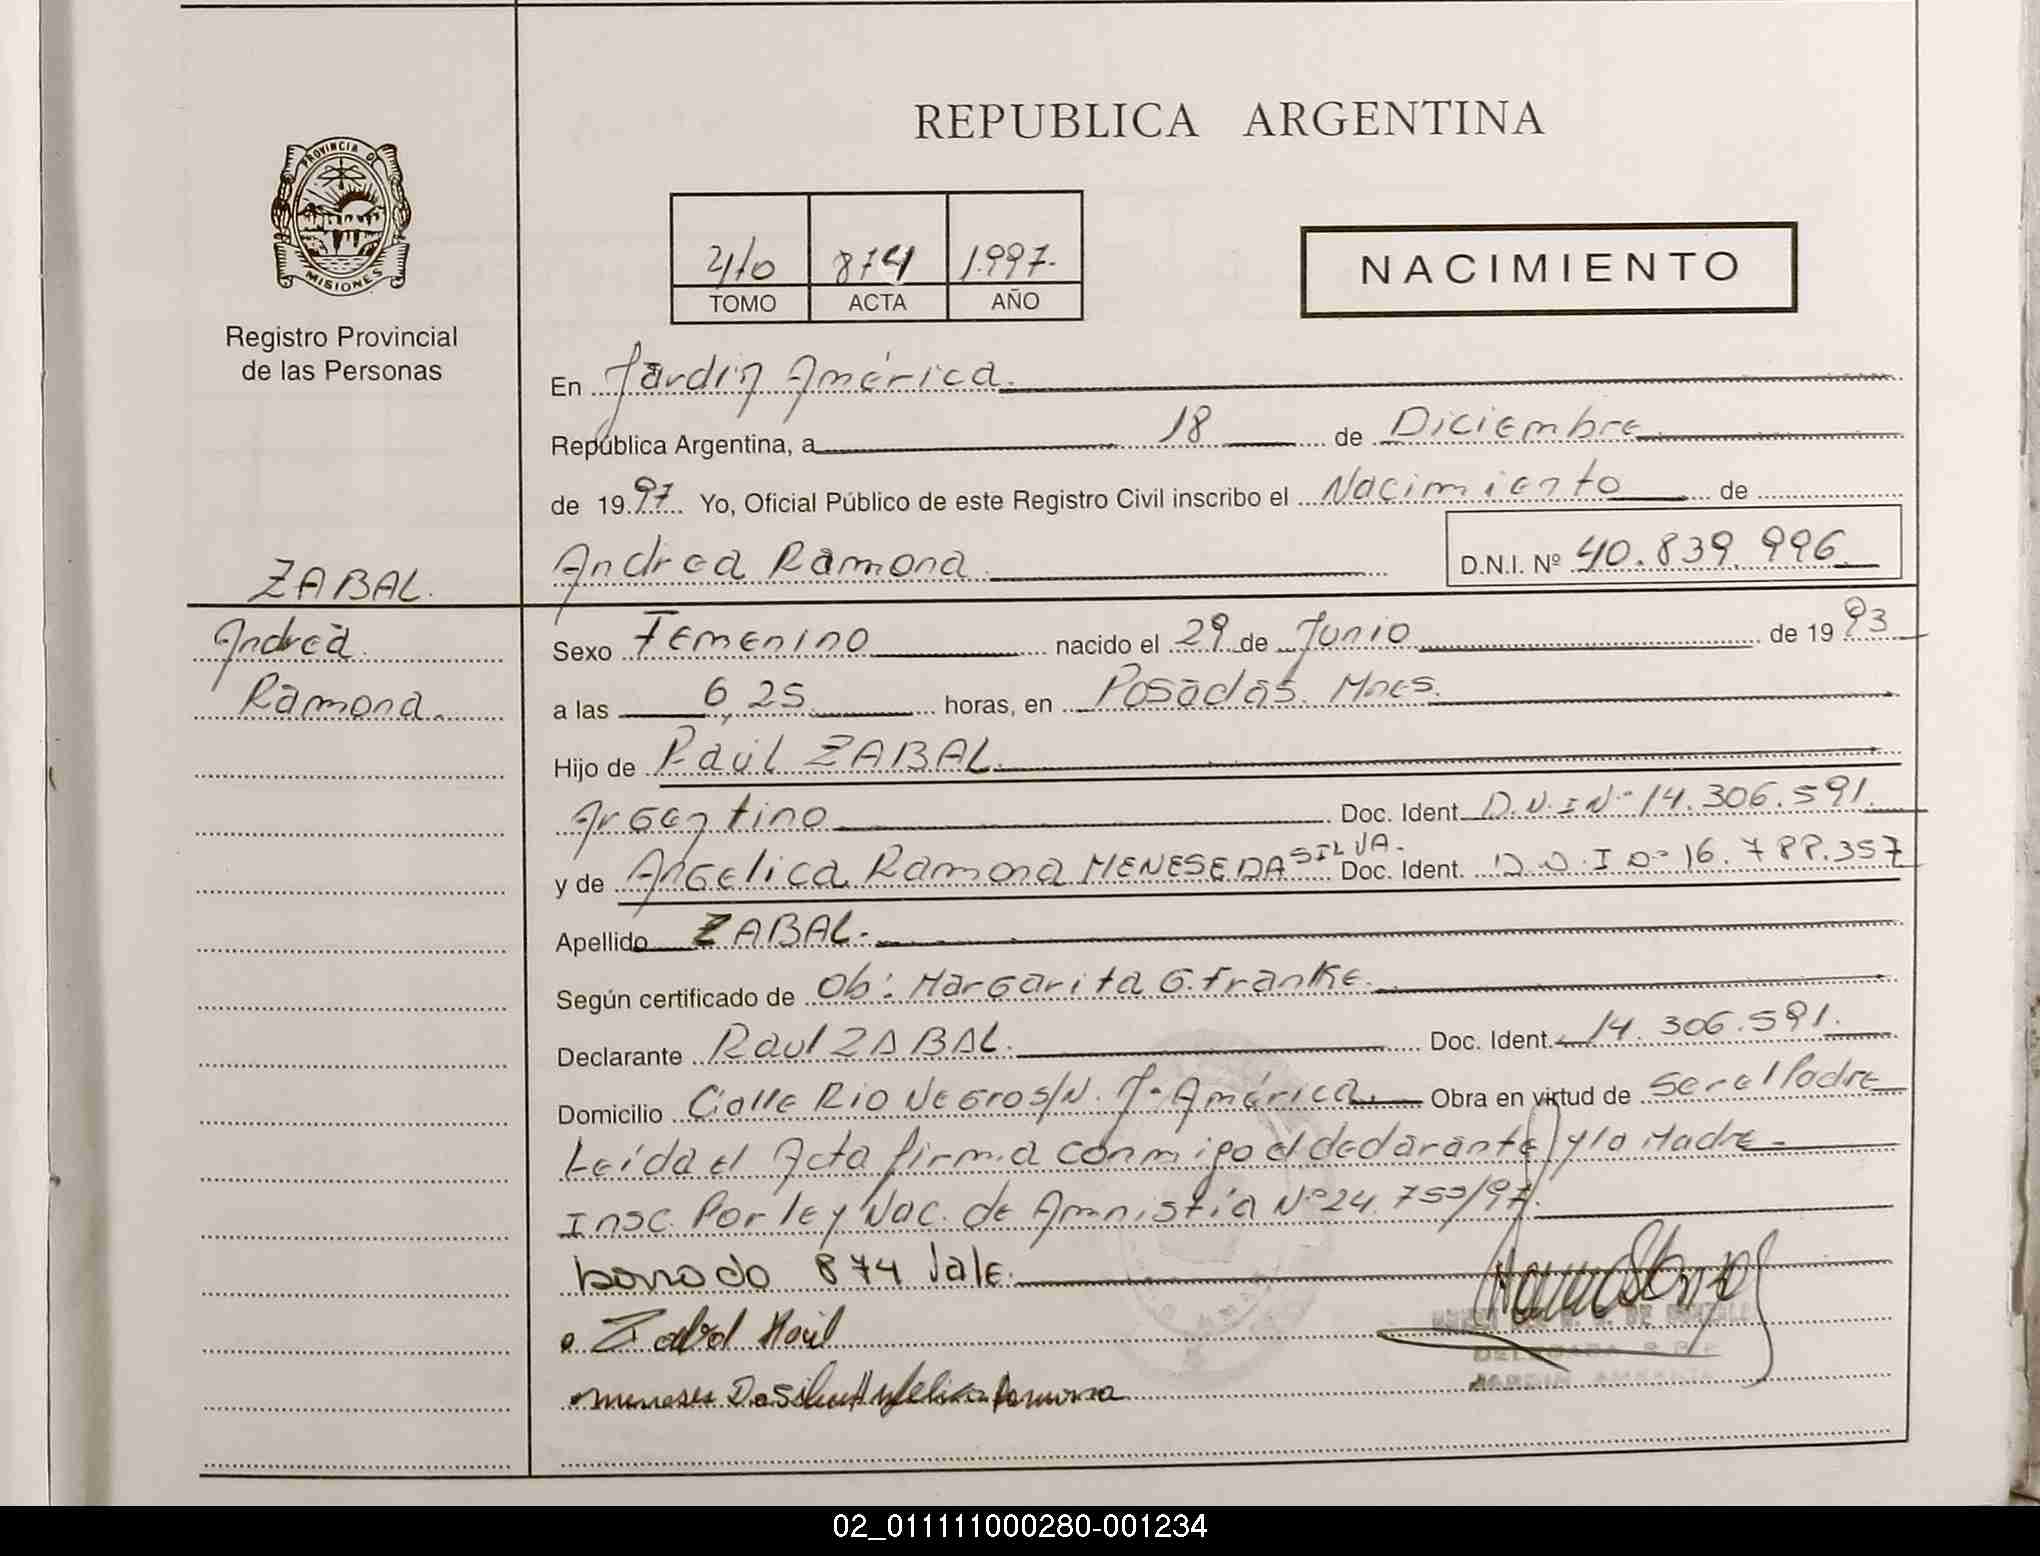 REPUBLICA ARGENTINA
PROVINCIA DE
MISIONES
Registro Provincial
de las Personas
4/0 874 1.997.
TOMO ACTA AÑO
NACIMIENTO
En Jardín América.
República Argentina, a 18 de Diciembre
de 19 97 Yo, Oficial Público de este Registro Civil inscribo el Nacimiento de
ZABAL.
Andrea Ramona D.N.I. Nº 40.839.996
Andrea
Ramona.
Sexo Femenino nacido el 29 de Junio de 19 93
a las 6,25 horas, en Posadas. Mnes.
Hijo de Raúl ZABAL.
Argentino Doc. Ident. D.N.I Nº 14.306.591.
y de Angelica Ramona MENESE DA SILVA. Doc. Ident. D.N.I Nº 16.788.357
Apellido ZABAL.
Según certificado de Ob: Margarita G. Franke.
Declarante Raul ZABAL. Doc. Ident. 14.306.591.
Domicilio Calle Rio Negro S/N. J. América. Obra en virtud de ser el Padre
Leída el Acta firma conmigo el declarante y la Madre
Insc. Por ley Nac. de Amnistía Nº 24.755/97.
borrado 874 Vale.
Zabal Raúl
meneses Da silva Angelica Ramona
02_011111000280-001234